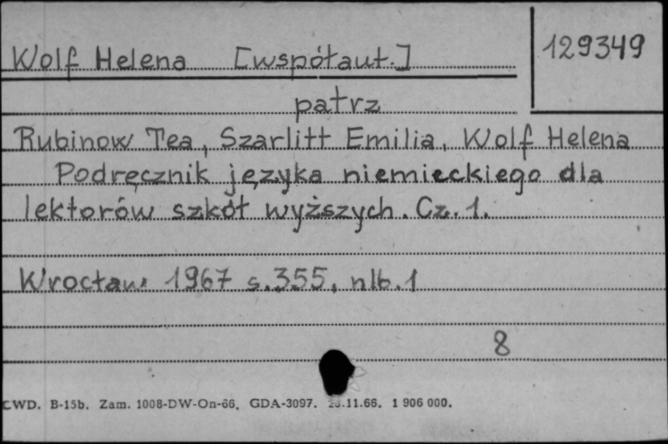 Wolf Helena [współaut.]
129349
patrz
Rubinow Tea, Szarlitt Emilia, Wolf Helena
Podręcznik języka niemieckiego dla
lektorów szkół wyższych. Cz. 1.
Wrocław 1967 s. 355, nlb. 1
8
CWD. B-15b. Zam. 1008-DW-On-66. GDA-3097. .11.66. 1 906 000.